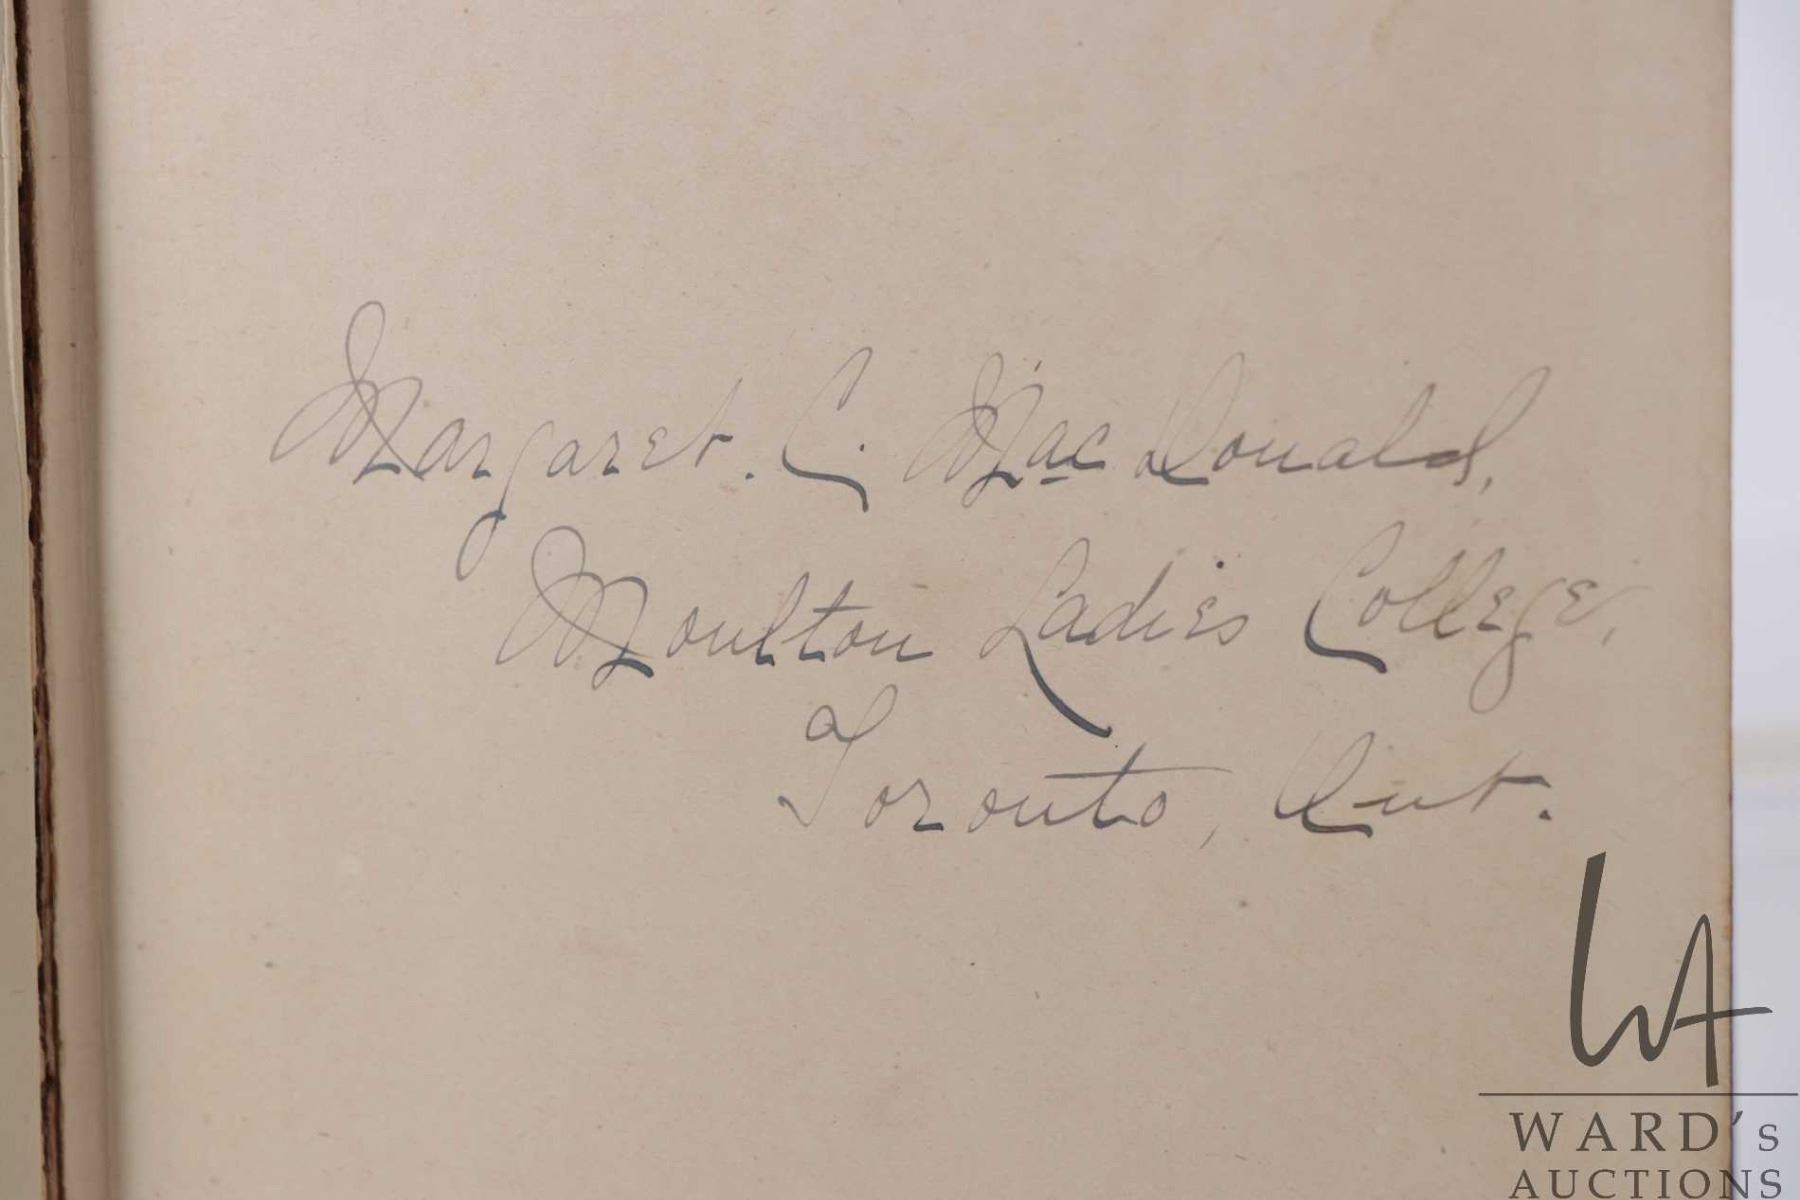 Margaret. C. MacDonald,
Moulton Ladies College,
Toronto, Ont.
WA
WARD's
AUCTIONS